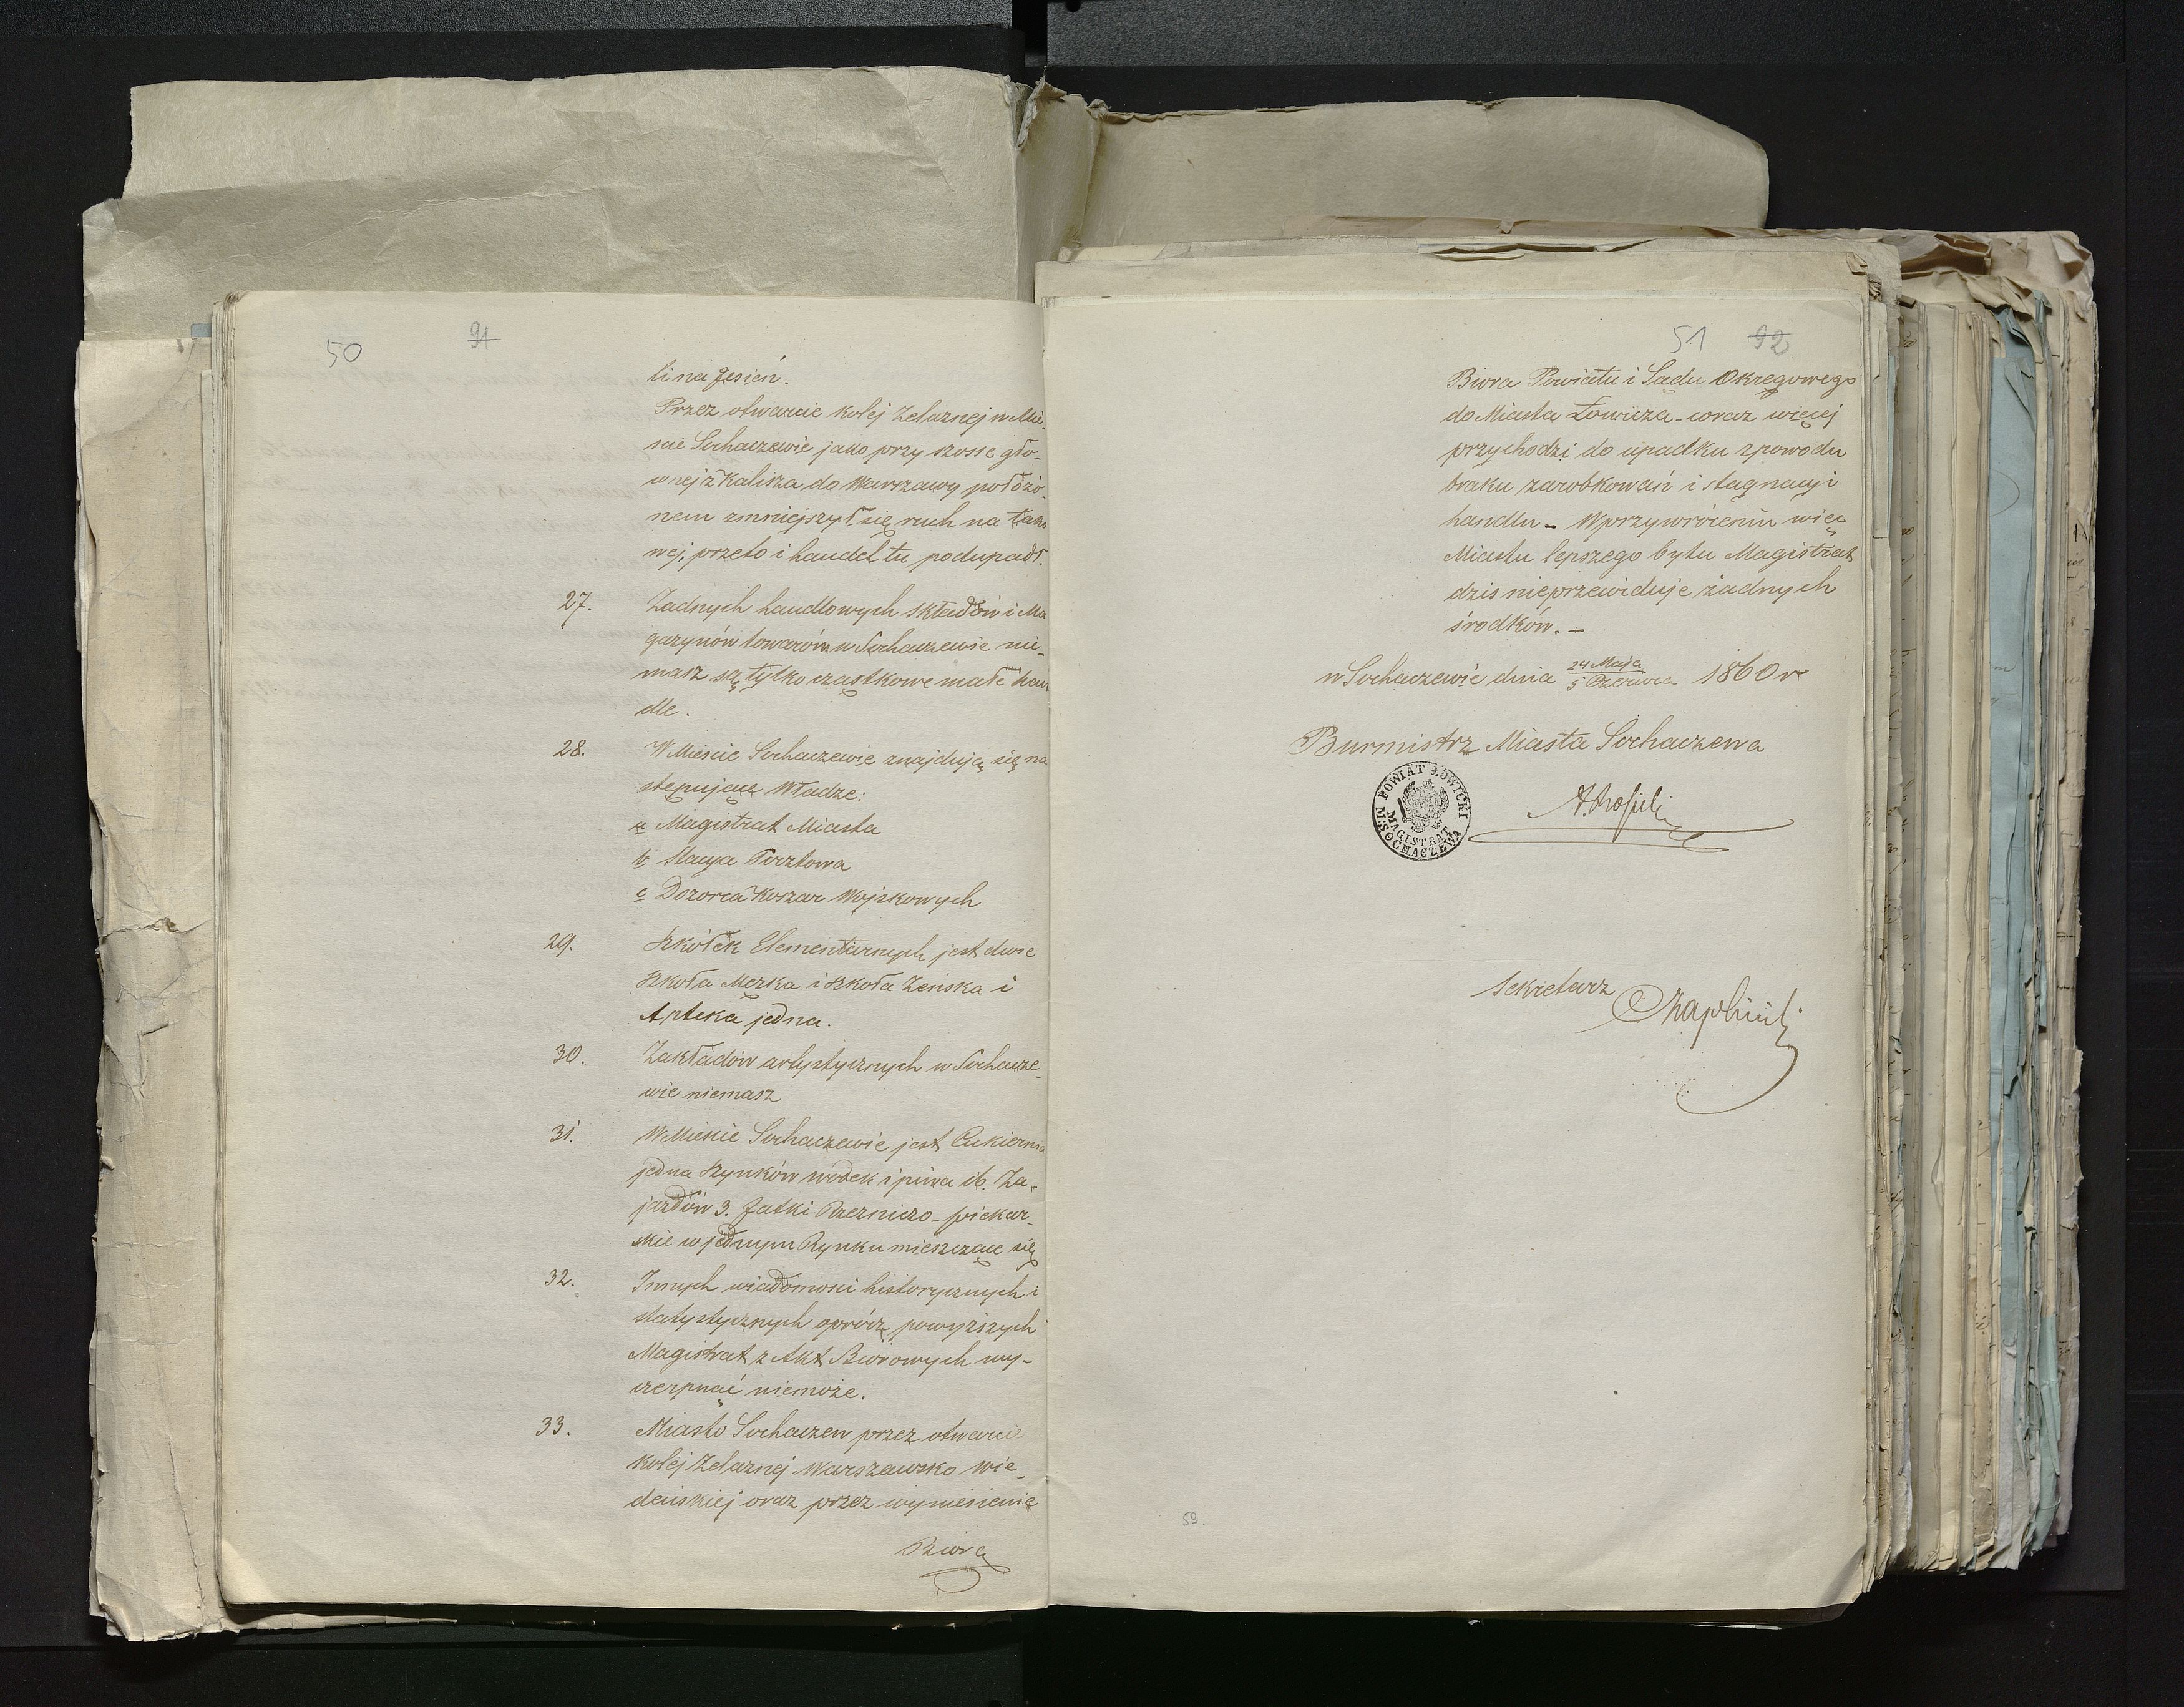 50 91
li na Jesień.
Przez otwarcie kolej Żelaznej w Mie-
scie Sochaczewie jako przy szosse głó-
wnej z Kalisza do Warszawy położo-
nem zmniejszył się ruch na tako
wej, przeto i handel tu podupadł.
27. Żadnych handlowych składów i Ma
gazynów towarów w Sochaczewie nie-
masz są tylko cząstkowe małe han
dle.
28. W Miescie Sochaczewie znajdują się na
stępujące Władze:
a Magistrat Miasta
b Stacya Pocztowa
c Dozorca Koszar Wojskowych
29. Szkółek Elementarnych jest dwie
Szkoła Męzka i Szkoła Żeńska i
Apteka jedna.
30. Zakładów artystycznych w Sochacze-
wie niemasz
31. W Mieście Sochaczewie jest Cukiernia
jedna Szynków wódek i piwa 16. Za-
jazdów 3. Jatki Rzeźniczo-piekar-
skie w jednym Rynku mieszczące się
32. Innych wiadomosci historycznych i
statystycznych oprócz powyższych
Magistrat z Akt Biórowych wy-
czerpnąć niemoże.
33. Miasto Sochaczew przez otwarcie
Kolej Żelaznej Warszawsko Wie-
deńskiej oraz przez wyniesienie
Biora
51 92
Biora Powiatu i Sądu Okręgowego
do Miasta Łowicza - coraz więcej
przychodzi do upadku zpowodu
braku zarobkowań i stagnacyi
handlu - W przywróceniu więc
Miastu lepszego bytu Magistrat
dzis nieprzewiduje żadnych
środków. -
w Sochaczewie dnia 24 Maja / 5 Czerwca 1860 r
Burmistrz Miasta Sochaczewa
POWIAT ŁOWICKI
MAGISTRAT
M. SOCHACZEWA
Sekretarz
Czapliński
59.